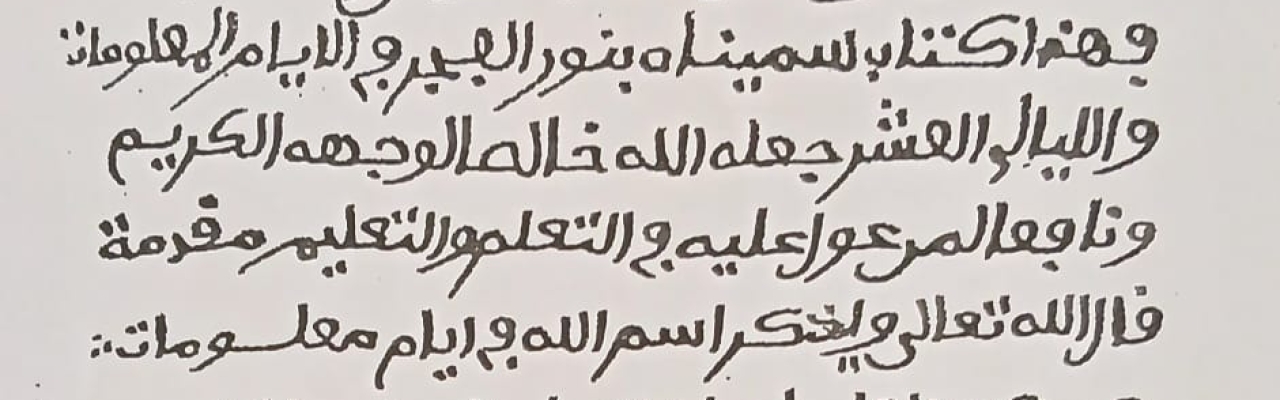 وهذا كتاب سميناه بنور الفجر في الايام المعلومات
والليالي العشر جعله الله خالصا لوجهه الكريم
ونافعا لمن عول عليه في التعلم والتعليم مقدمة
قال الله تعالى ويذكر اسم الله في ايام معلومات